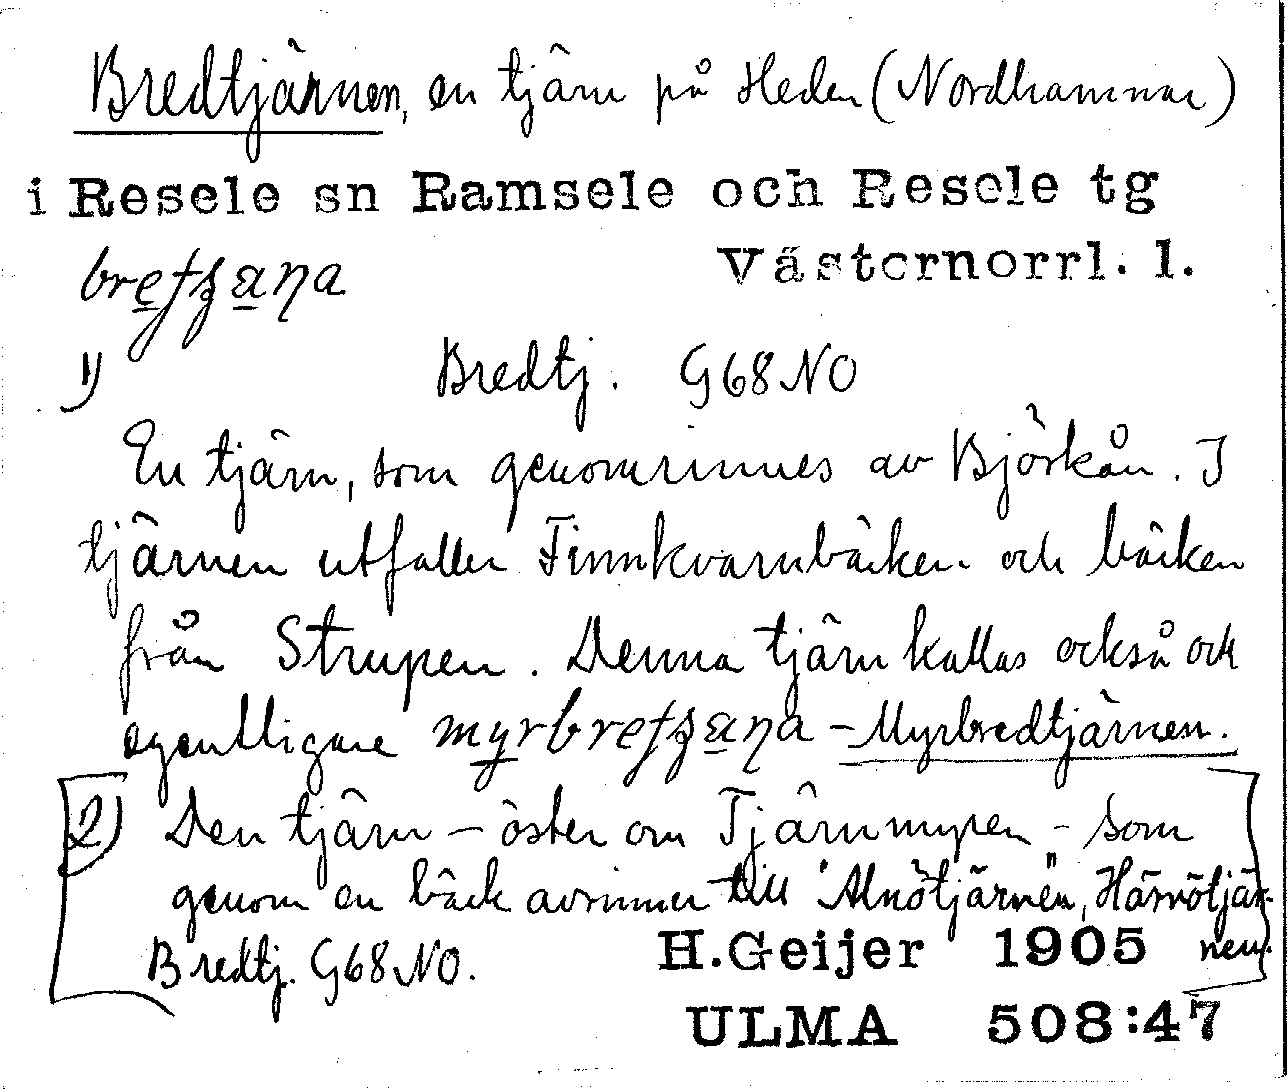 Bredtjärnen, en tjärn på Heden (Nordhammar)
i Resele sn Ramsele och Resele tg
Västernorrl. l.
1)
Bredtj. G68NO
En tjärn, som genomrinnes av Björkån. I
tjärnen utfaller Finnkvarnbäcken och bäcken
från Strupen. Denna tjärn kallas också och
egentligare – Myrbredtjärnen.
2) Den tjärn – öster om Tjärnmyren – som
genom en bäck avrinner till "Alnötjärnen", Härnötjär-
nen.
Bredtj. G68NO.
H.Geijer 1905
ULMA 508:47